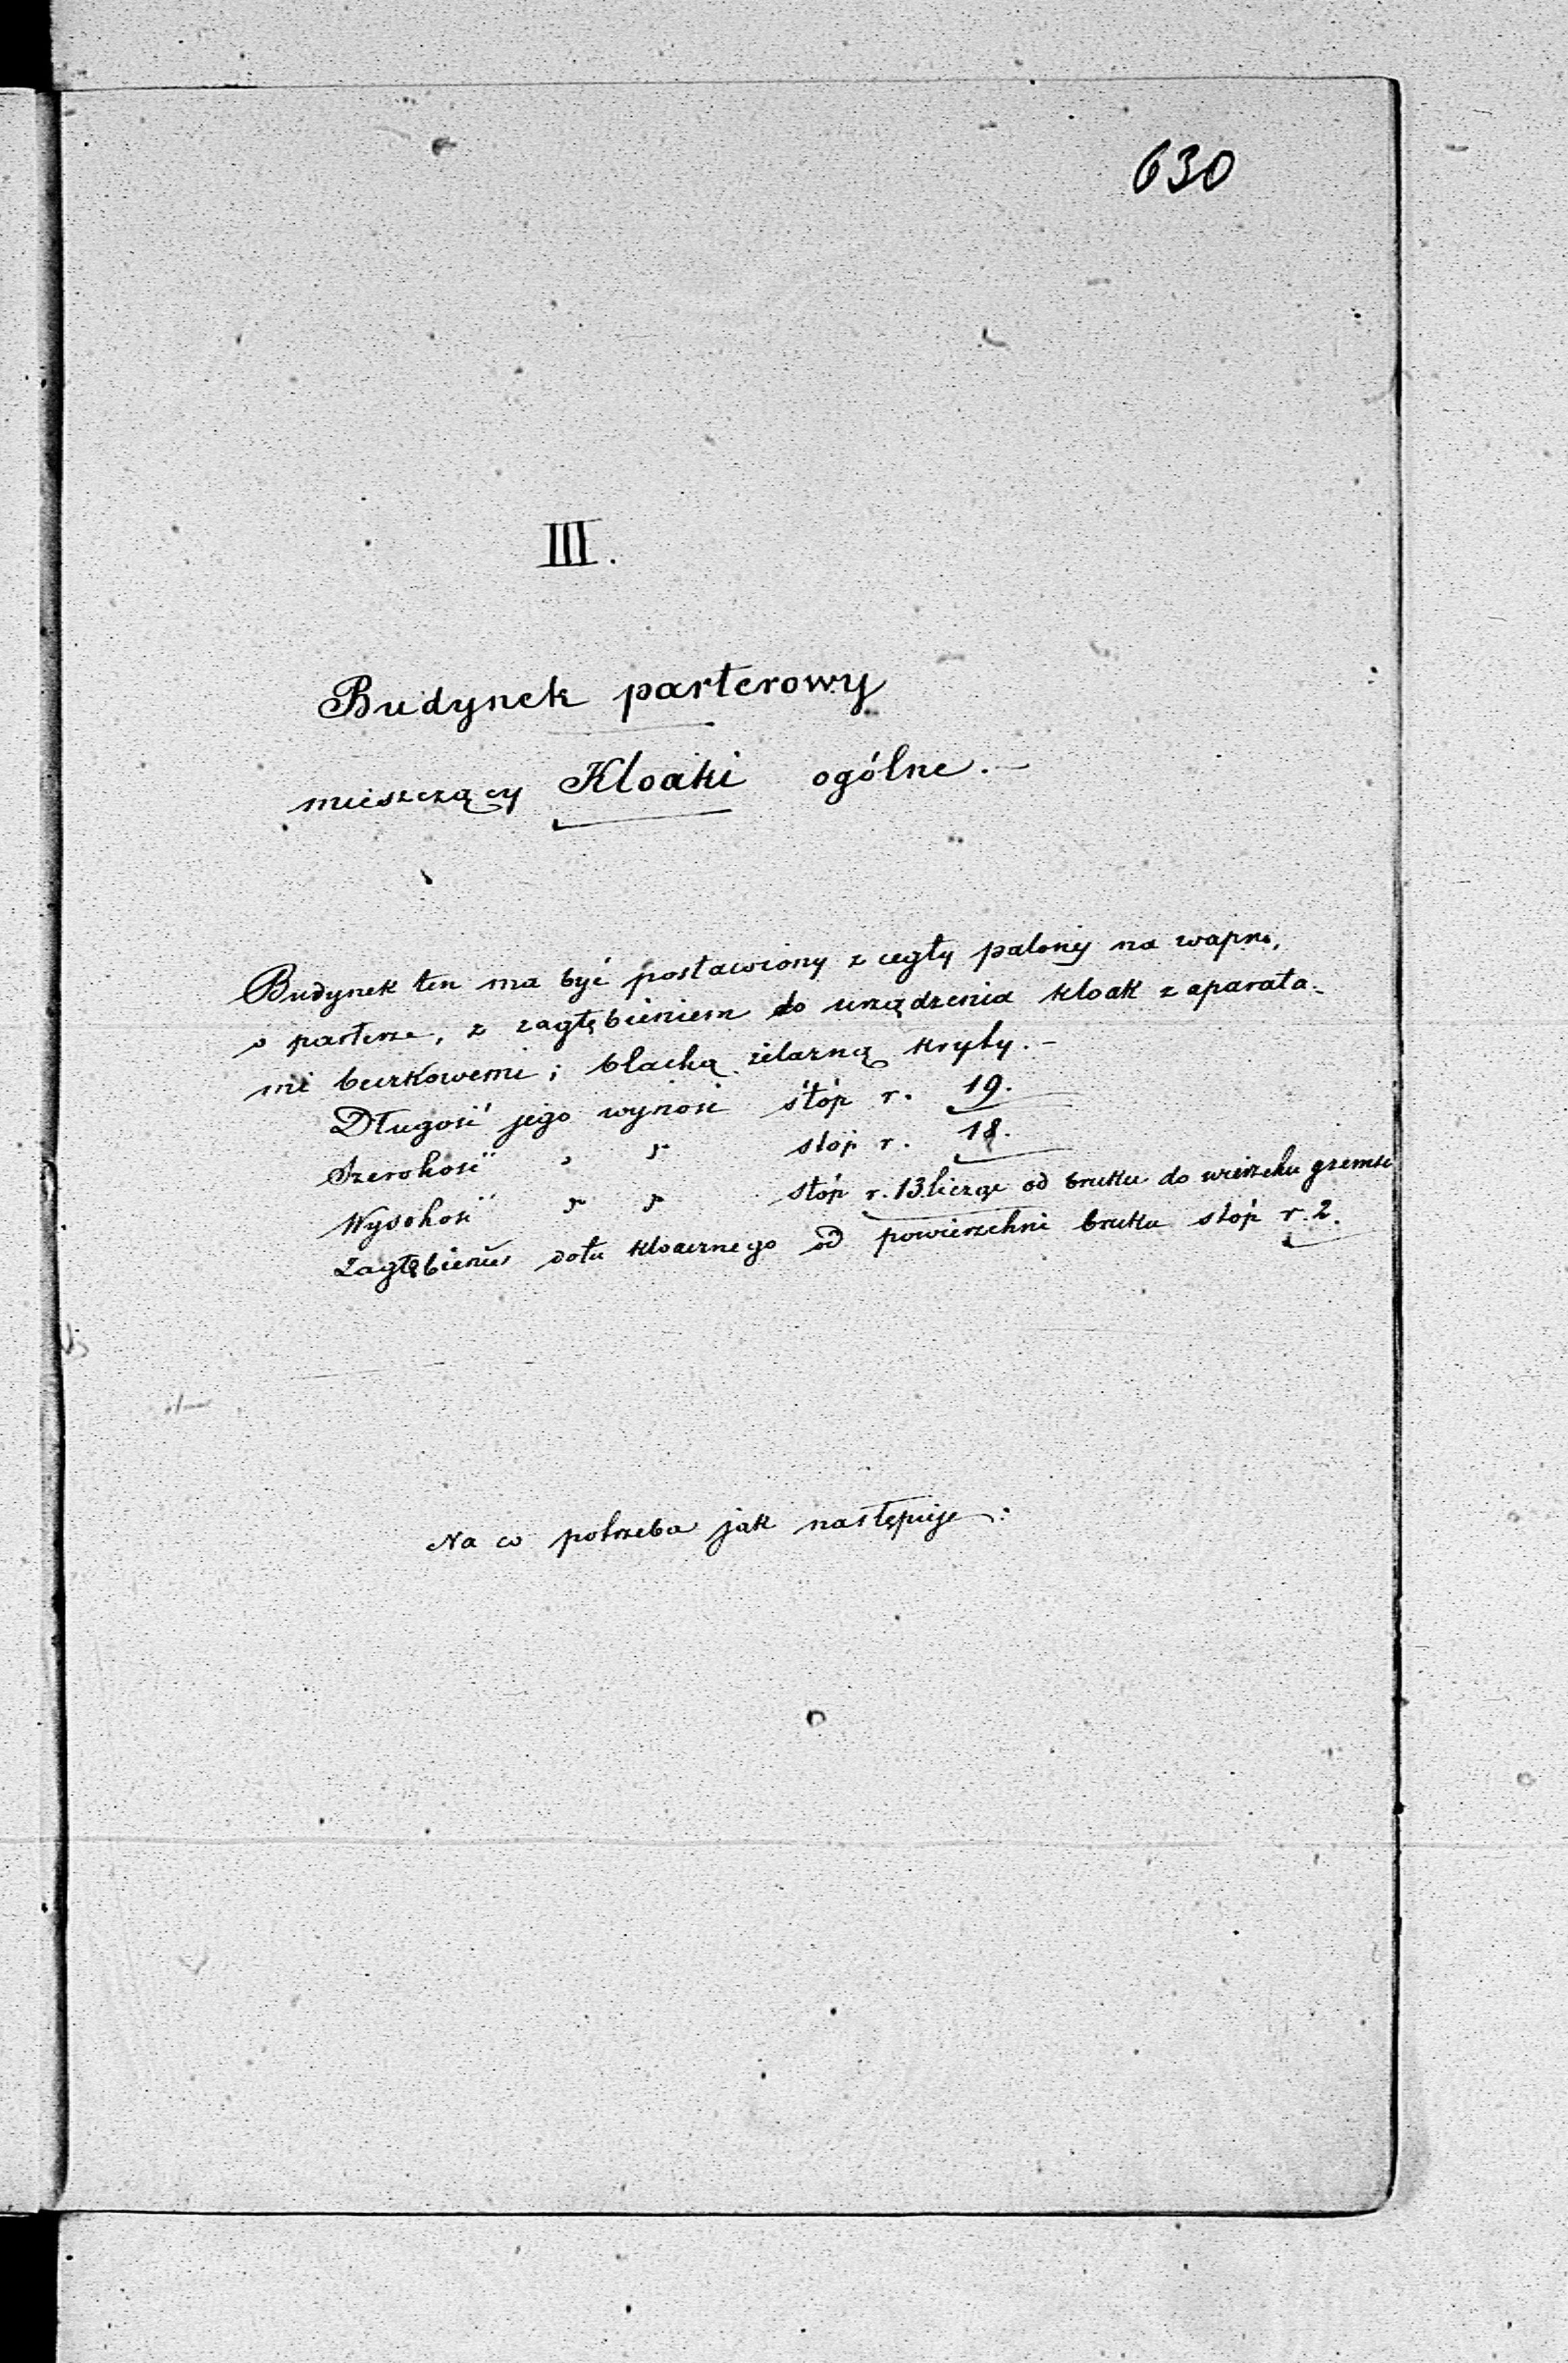 630
III.
Budynek parterowy
mieszczący Kloaki ogólne. —
Budynek ten ma być postawiony z cegły palonéj na wapno,
o parterze, z zagłębieniem do urządzenia kloak z aparata-
mi beczkowemi; blachą żelazną kryty. —
Długość jego wynosi stóp r. 19.
Szerokość " " stóp r. 18.
Wysokość " " stóp r. 13 licząc od bruku do wierzchu gzemsu
Zagłębienie dołu kloacznego od powierzchni bruku stóp r. 2.
Na co potrzeba jak następuje: